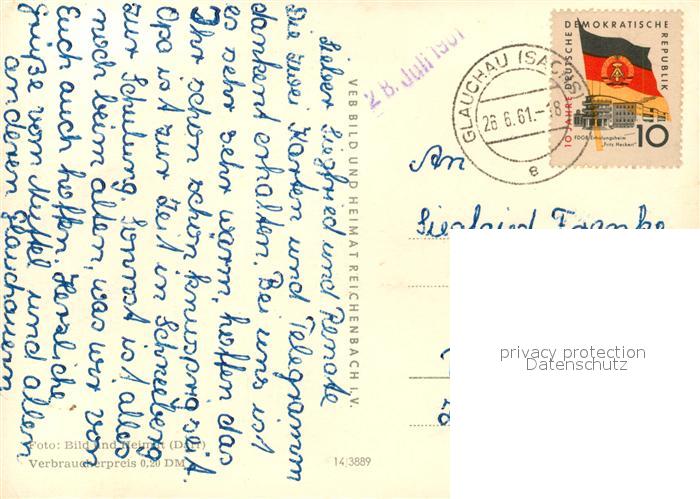 Lieber Siegfried und Renate
Die zwei Karten und Telegramm
dankent erhalten. Bei uns ist
es sehr sehr warm, hoffen das
Ihr schon schön knusprig seit.
Opa ist zur Zeit in Schneeberg
zur Schulung. Sonnst ist alles
noch beim alten, was wir von
Euch auch hoffen. Herzliche
grüße vom Muffel und allen
anderen Glauchauern
VEB BILD UND HEIMAT REICHENBACH I. V.
28. Juli 1961
GLAUCHAU (SACHS)
26.6.61.-18
e
10 JAHRE DEUTSCHE DEMOKRATISCHE REPUBLIK
FDGB Erholungsheim
"Fritz Heckert"
10
An
Siegfried Franke
privacy protection
Datenschutz
Foto: Bild und Heimat (Darr)
Verbraucherpreis 0,20 DM
14/3889